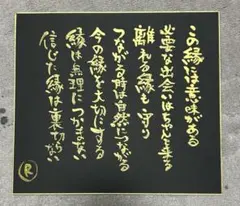 この縁には意味がある
必要な出会いはちゃんと来る
離れる縁も守り
つながる時は自然につながる
今の縁を大切にする
縁は無理につかまない
信じた縁は裏切らない